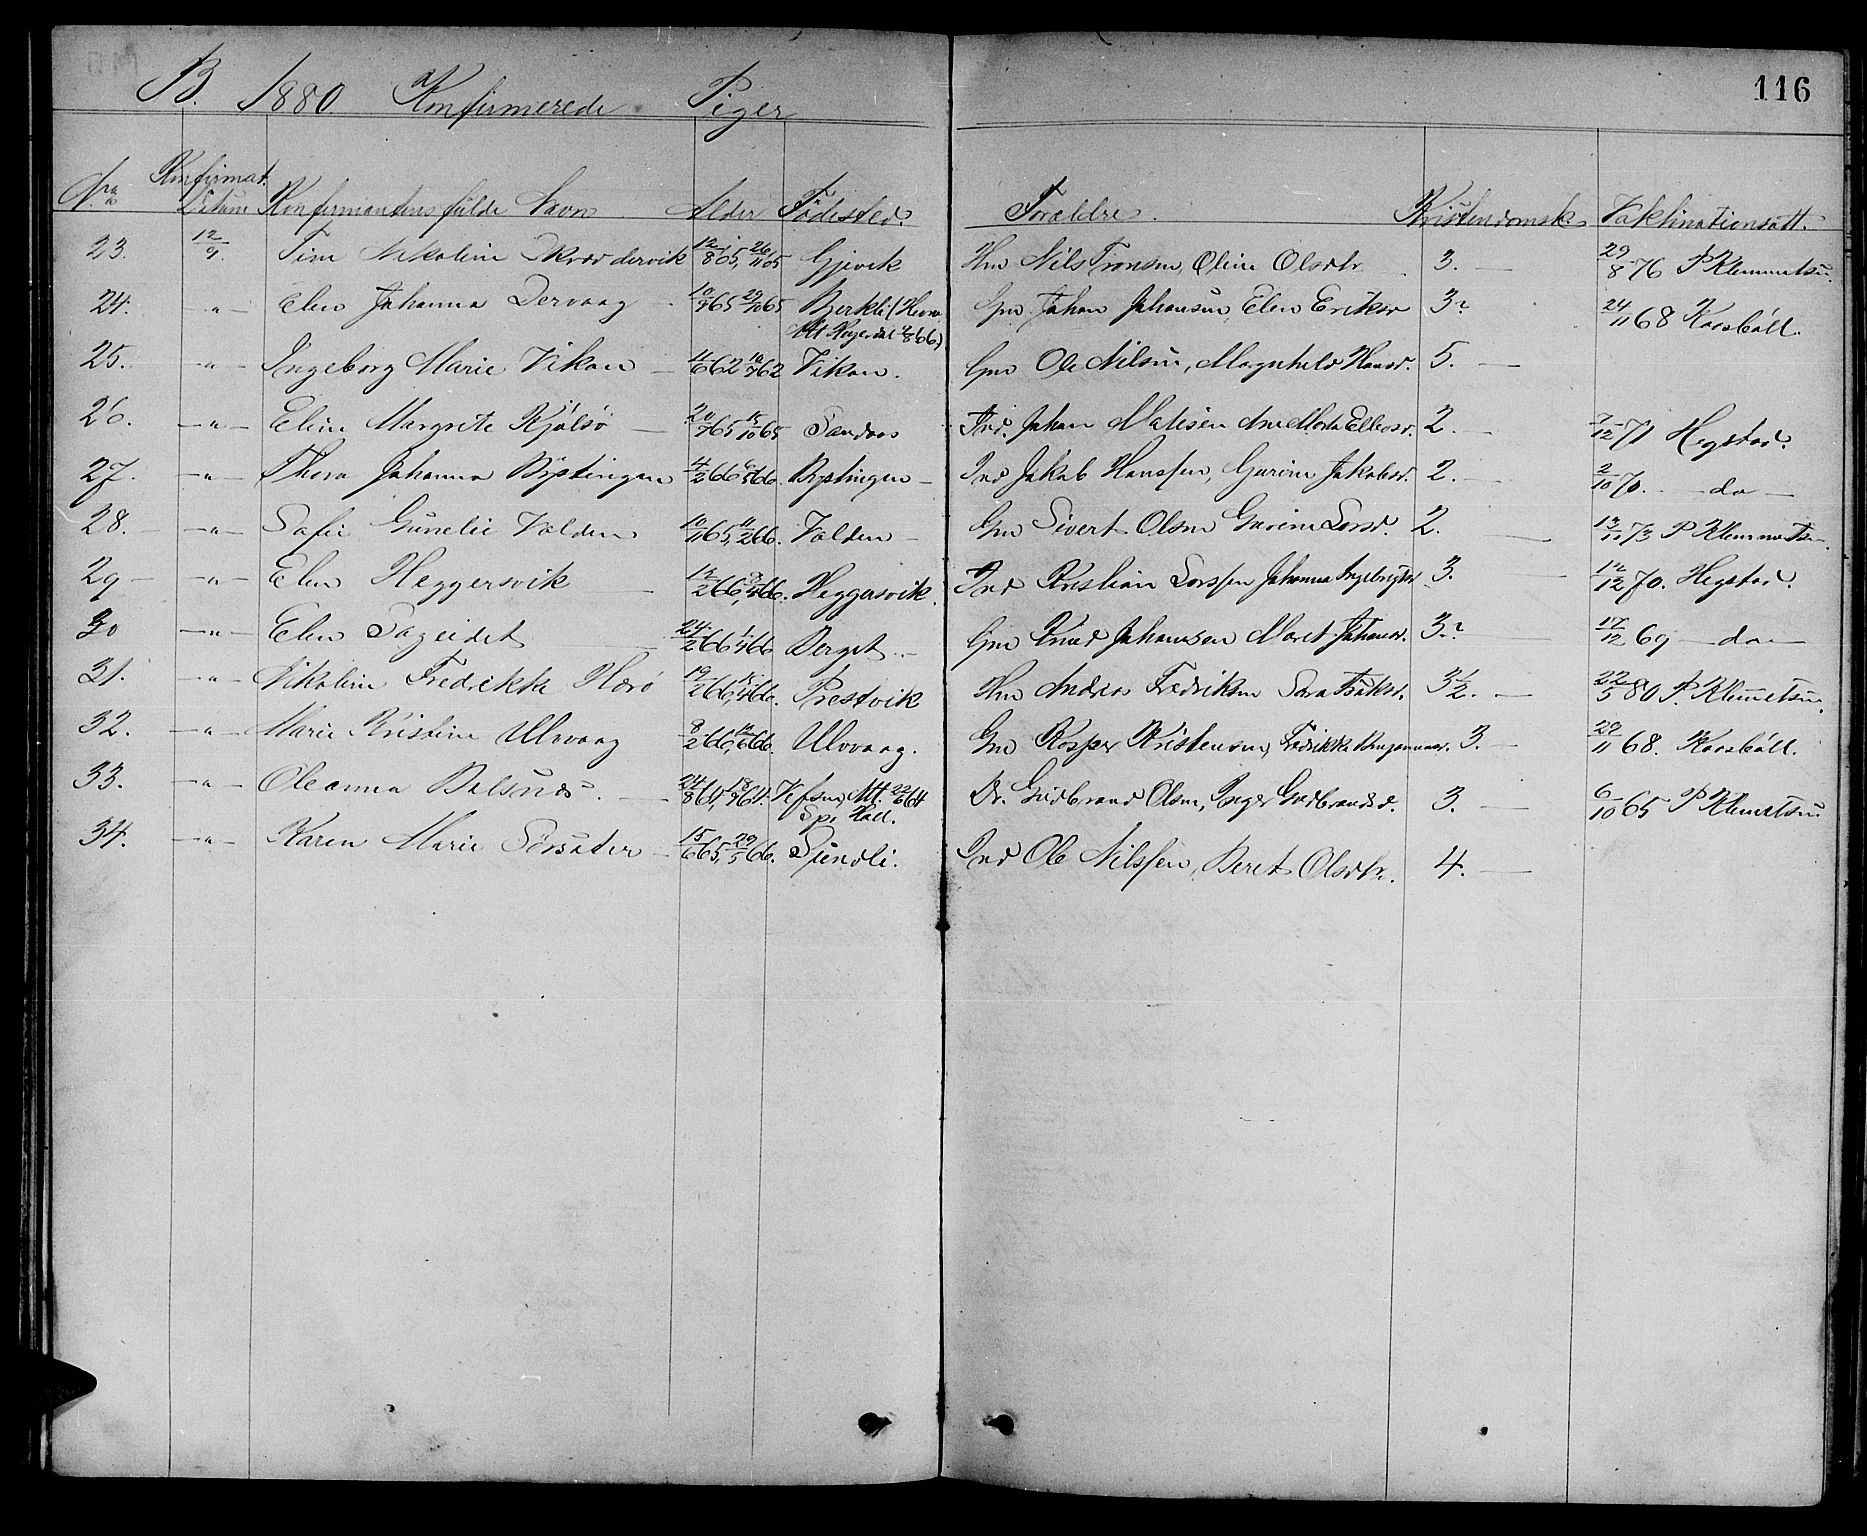 B. 1880. Konfirmerede Piger
116
No Konfirmat. Datum Konfirmantens fulde Navn Alder Fødested. Forældre. Kristendomsk. Vaktinationsatt.
23. 12/9. Nikoline 12/8 65, 26/11 65 Gjevik Hm Nils Tronsen, Oline Olsdtr 3. 29/8 76 P Klemmetsn.
24. -"- Elen Johanna Dervaag 65 65 Bjerkli (Hevne Gm Johan Johansen, Elen Eriksd 3? 24/11 68 Korsböll.
25. -"- Ingeborg Marie Vikan 4/6 62 62 Vikan. Gm Ole Nilsen, Magnhild Hansd. 5.
26. -"- Eline Margrete Kjölsö 65 15/10 65 Sandnes Ind. Johan Matisen 2. 7/12 71 Hegstad.
27. -"- Thora Johanna Bystingen 4/2 66 66. Bystingen Ind Jakob Hanssen, Gurine Jakobsd. 2. 2/10 70. do
28. -"- Sofie Gunelie Valden 10/11 65, 11/2 66. Valden Gm Sivert Olsen Gurine Larsd. 2. 13/11 73 P Klemmetsn.
29 -"- Elen Heggersvik 66, 66. Heggersvik. Ind Kristian Larssen Johanna Ingebrigtsd 3. 12/12 70. Hegstad.
30 -"- Elen Sageidet 24/2 66 1/4 66 Berget Gm Knud Johansen Maret Johansd. 3? 17/12 69 do
31. -"- Nikoline Fredrikke Hærö 19/2 66, 66. Prestvik Hm Andrias Fredriksen Sara Isaksd. 3½. 22/5 80 P. Klemetsn.
32. -"- Marie Kristine Ulvvaag 8/2 66, 66. Ulvvaag. Gm Kasper Kristensen, Fredrikke Benjaminsd. 3. 29/11 68. Korsböll.
33. -"- Oleanna Balsnes. 24/8 64, 18/9 64. Vefsen, Att. 22/6 64 Dr. Gudbrand Olsen, Inger Gudbrandsd. 3. 6/10 65 P Klemetsn
34. -"- Karen Marie Sörsæter 15/6 65, 29/5 66. Sundli. Ind Ole Nilssen, Beret Olsdtr. 4.